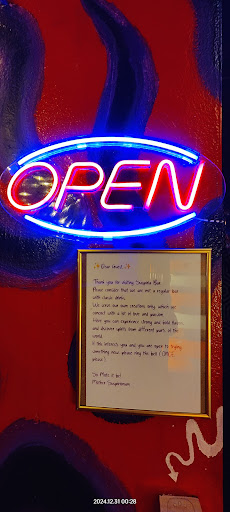 OPEN
Dear Guest,
Thank you for visiting Bar
Please consider that we are not a regular bar
with classic drinks.
We serve our own creations only, which we
concoct with a lot of love and passion.
Here you can experience strong and bold flavors
and discover spirits from different parts of the
world.
If this interests you and you are open to trying
something new, please ring the bell (ONCE,
please)
So Mote it be!
Mother Superior
2024.12.31 00:28